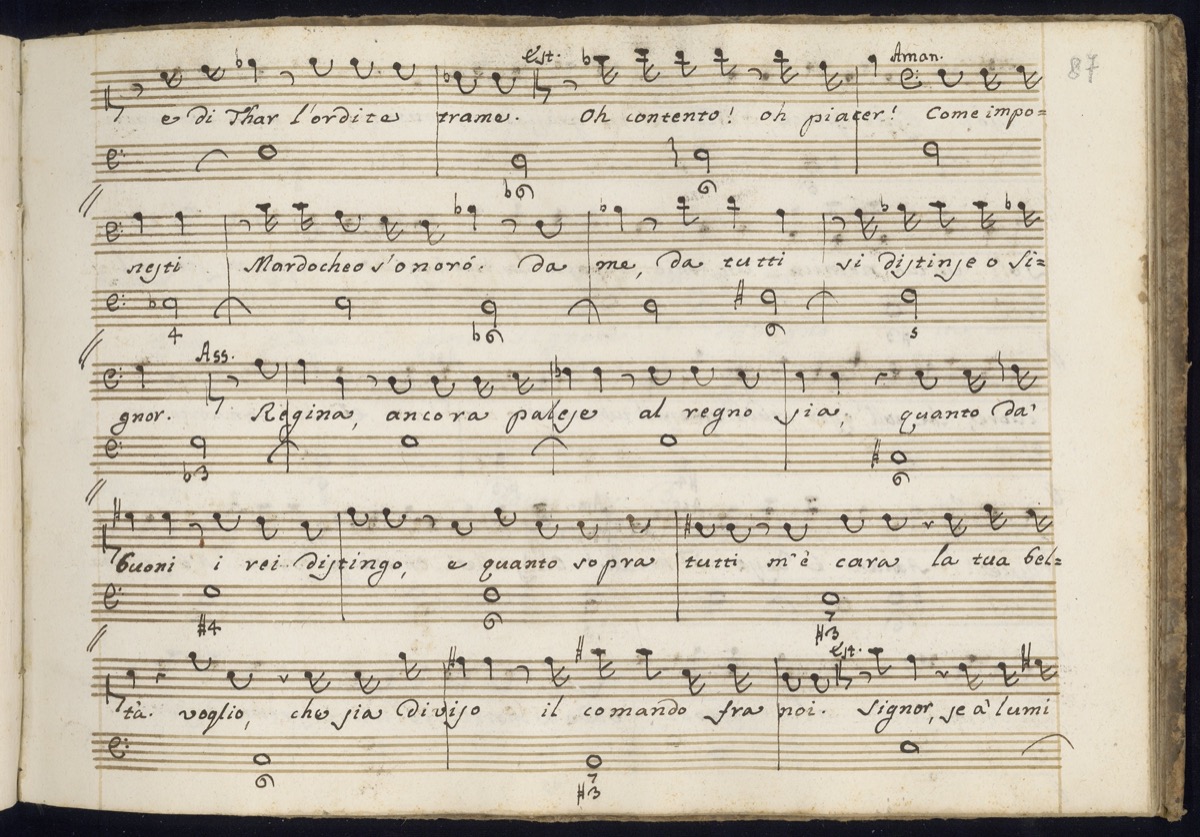 87
Est. Aman.
e di Thar l'ordite trame. Oh contento! oh piacer! Come impo=
b6 6
nesti Mardocheo s'onoró. da me, da tutti si distinse o Si=
4 b6 6 5
Ass.
gnor. Regina, ancora palese al regno sia, quanto da'
b3 6
buoni i rei distingo, e quanto sopra tutti m'è cara la tua bel=
#4 6 7
#3
Est.
tà. voglio, che sia diviso il comando fra noi. Signor, se a' lumi
6 7
#3